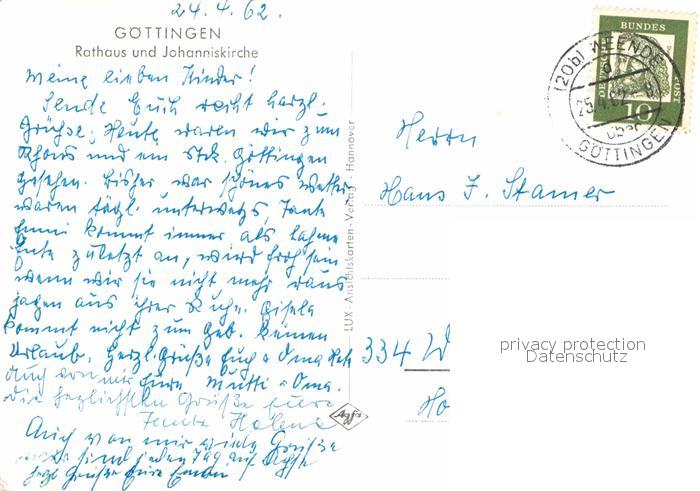 24.4.62.
GÖTTINGEN
Rathaus und Johanniskirche
Meine lieben Kinder!
Sende Euch recht herzl.
Grüße, Heute waren wir zum
Rhons und ein Stck. Göttingen
gesehen. Bisher war schönes Wetter
waren tägl. unterwegs, Tante
Emmi kommt immer als lahme
Ente zuletzt an, wird froh sein
wenn wir sie nicht mehr raus
jagen aus ihrer Ruhe. Gisela
kommt nicht zum Geb. keinen
Urlaub. Herzl. Grüße Euch u Oma
Auch von mir Eure Mutti u Oma.
die herzlichsten Grüße Eure
Tante Helene
Auch von mir viele Grüße
sind jeden Tag auf Achse
herzl Grüße Eure Emmi
LUX-Ansichtskarten-Verlag Hannover
Agfa
BUNDES
10
(20b) WEENDE
25.4.62
über
GÖTTINGEN
Herrn
Hans J. Stamer
334 W
Ho
privacy protection
Datenschutz